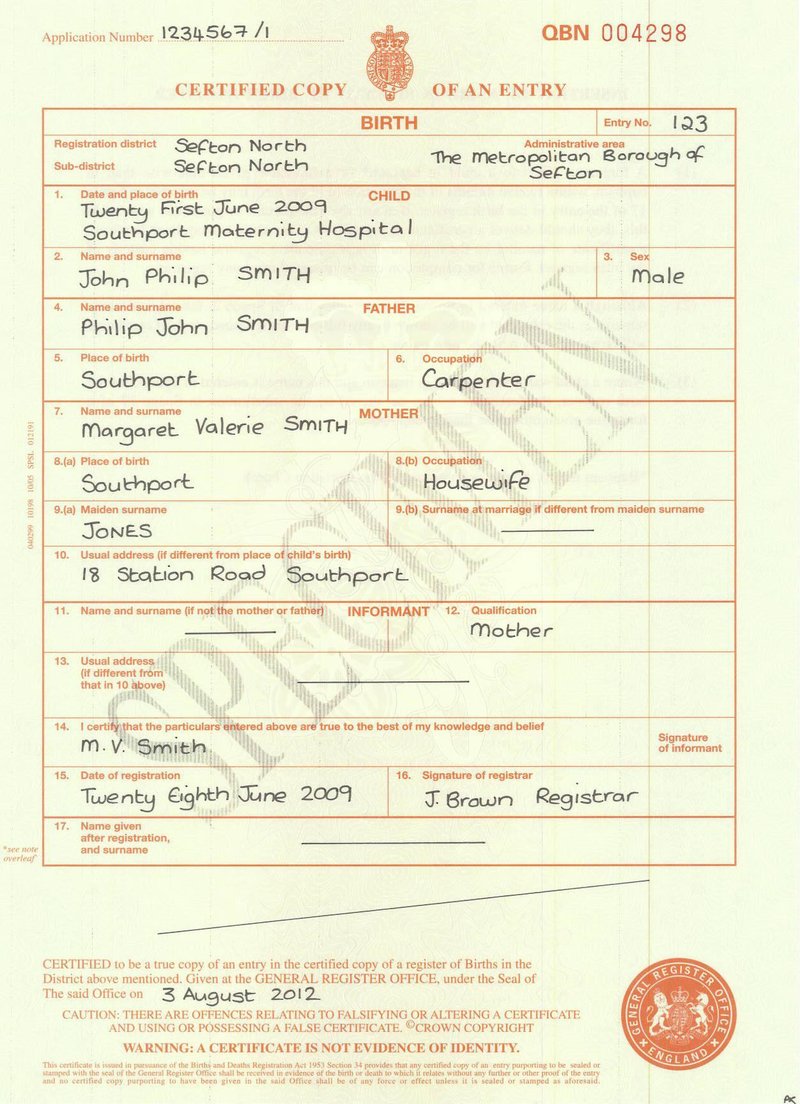 Application Number 1234567/1
QBN 004298
CERTIFIED COPY OF AN ENTRY
BIRTH
Entry No. 123
Registration district Sefton North
Sub-district Sefton North
Administrative area
The Metropolitan Borough of
Sefton
1. Date and place of birth CHILD
Twenty First June 2009
Southport Maternity Hospital
2. Name and surname
John Philip SMITH
3. Sex
Male
4. Name and surname FATHER
Philip John SMITH
5. Place of birth
Southport
6. Occupation
Carpenter
7. Name and surname MOTHER
Margaret Valerie SMITH
8.(a) Place of birth
Southport
8.(b) Occupation
Housewife
9.(a) Maiden surname
JONES
9.(b) Surname at marriage if different from maiden surname
10. Usual address (if different from place of child's birth)
18 Station Road Southport
11. Name and surname (if not the mother or father) INFORMANT
12. Qualification
Mother
13. Usual address
(if different from
that in 10 above)
14. I certify that the particulars entered above are true to the best of my knowledge and belief
M.V. Smith
Signature
of informant
15. Date of registration
Twenty Eighth June 2009
16. Signature of registrar
J. Brown Registrar
17. Name given
after registration,
and surname
*see note
overleaf
040299 10198 10/05 SPSL 012191
SPECIMEN
CERTIFIED to be a true copy of an entry in the certified copy of a register of Births in the
District above mentioned. Given at the GENERAL REGISTER OFFICE, under the Seal of
The said Office on 3 August 2012
CAUTION: THERE ARE OFFENCES RELATING TO FALSIFYING OR ALTERING A CERTIFICATE
AND USING OR POSSESSING A FALSE CERTIFICATE. ©CROWN COPYRIGHT
WARNING: A CERTIFICATE IS NOT EVIDENCE OF IDENTITY.
This certificate is issued in pursuance of the Births and Deaths Registration Act 1953 Section 34 provides that any certified copy of an entry purporting to be sealed or
stamped with the seal of the General Register Office shall be received in evidence of the birth or death to which it relates without any further or other proof of the entry
and no certified copy purporting to have been given in the said Office shall be of any force or effect unless it is sealed or stamped as aforesaid.
GENERAL REGISTER OFFICE
ENGLAND